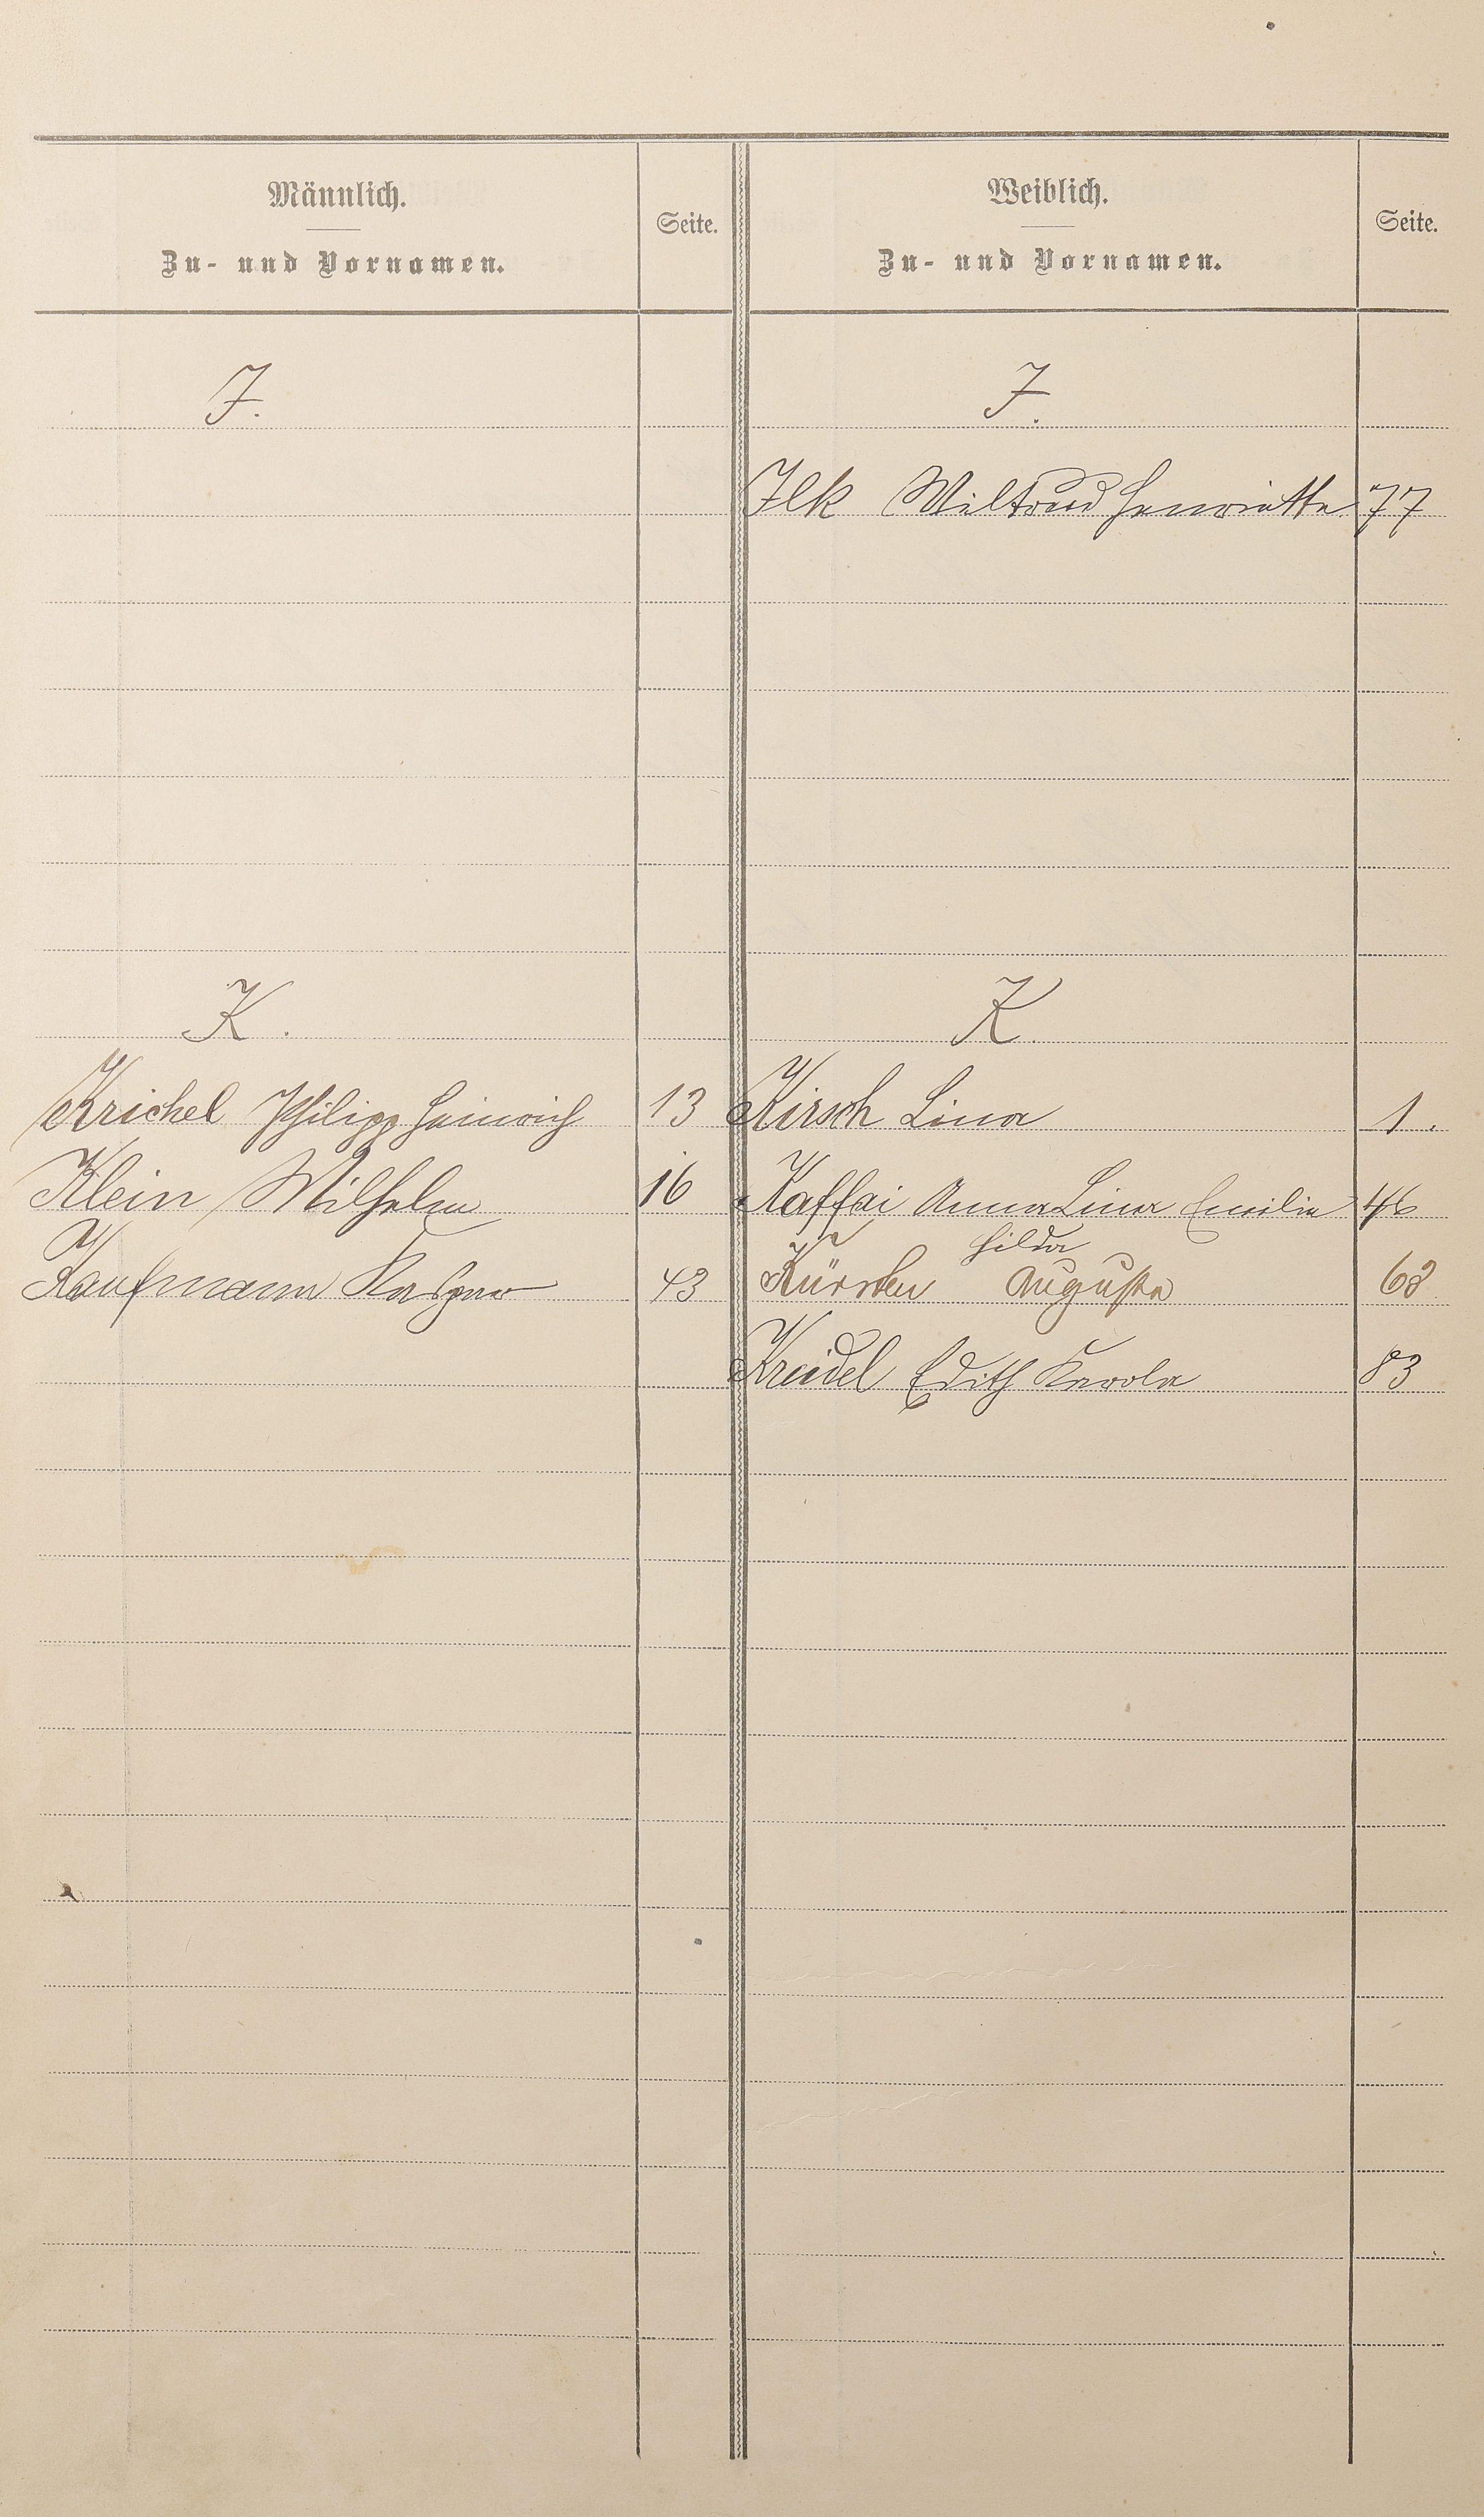 Männlich.
Zu- und Vornamen.
Seite.
Weiblich.
Zu- und Vornamen.
Seite.
J.
J.
Ilk Wiltrud Henriette 77
K.
K.
Krichel Philipp Heinrich 13
Kirsch Lina 1.
Klein Wilhelm 16
Kaffai Anna Lina Emilie 46
Hilda
Kaufmann Kaspar 43
Kürsten Augusta 68
Kreidel Edith Karola 83